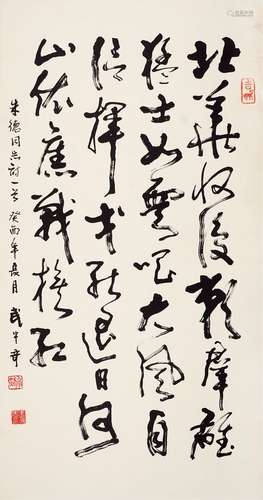 北華收復賴羣雄
猛士如雲唱大風自
信揮戈能退日河
山依舊戰旗紅
朱德同志詩一首 癸酉年月 武中奇